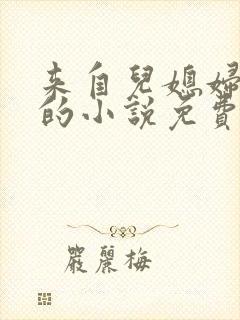 来自兒媳婦
的小說免費
嚴麗梅